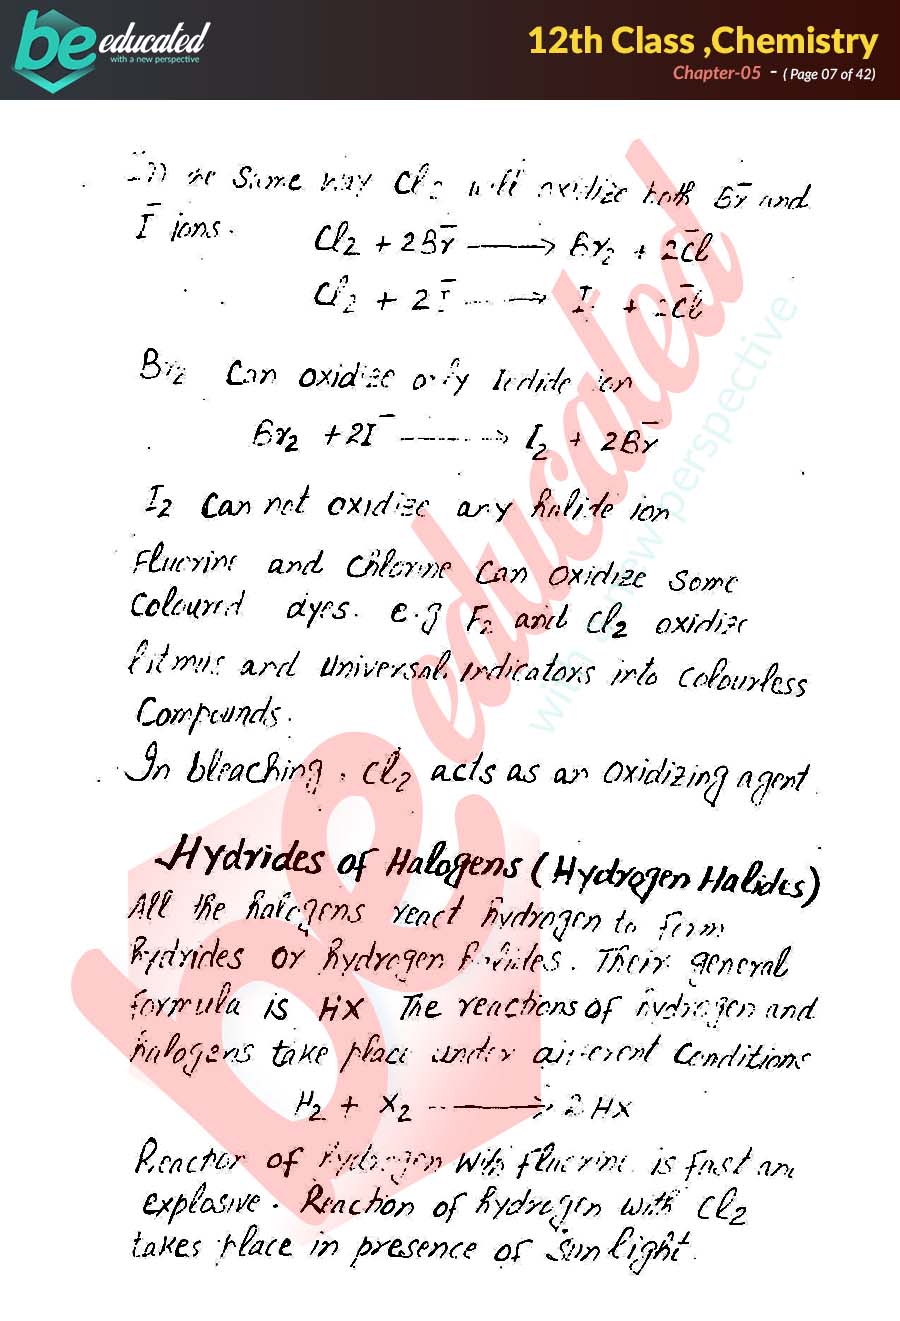 be educated
with a new perspective
12th Class ,Chemistry
Chapter-05 - ( Page 07 of 42)
In the same way Cl2 will oxidize both Br̄ and
Ī ions.
Cl2 + 2Br̄ → Br2 + 2C̄l
Cl2 + 2Ī → I + 2C̄l
Br2 Can oxidize only Iodide ion
Br2 + 2I⁻ → I2 + 2Br̄
I2 Can not oxidize any halide ion
Fluorine and Chlorine Can oxidize some
Coloured dyes. e.g F2 and Cl2 oxidize
litmus and Universal, Indicators into Colourless
Compounds.
In bleaching, Cl2 acts as an oxidizing agent.
Hydrides of Halogens (Hydrogen Halides)
All the halogens react hydrogen to form
hydrides or hydrogen halides. Their general
formula is HX The reactions of hydrogen and
halogens take place under different Conditions
H2 + X2 → 2HX
Reaction of hydrogen with fluorine is fast and
explosive. Reaction of hydrogen with Cl2
takes place in presence of Sun light.
be educated
with a new perspective